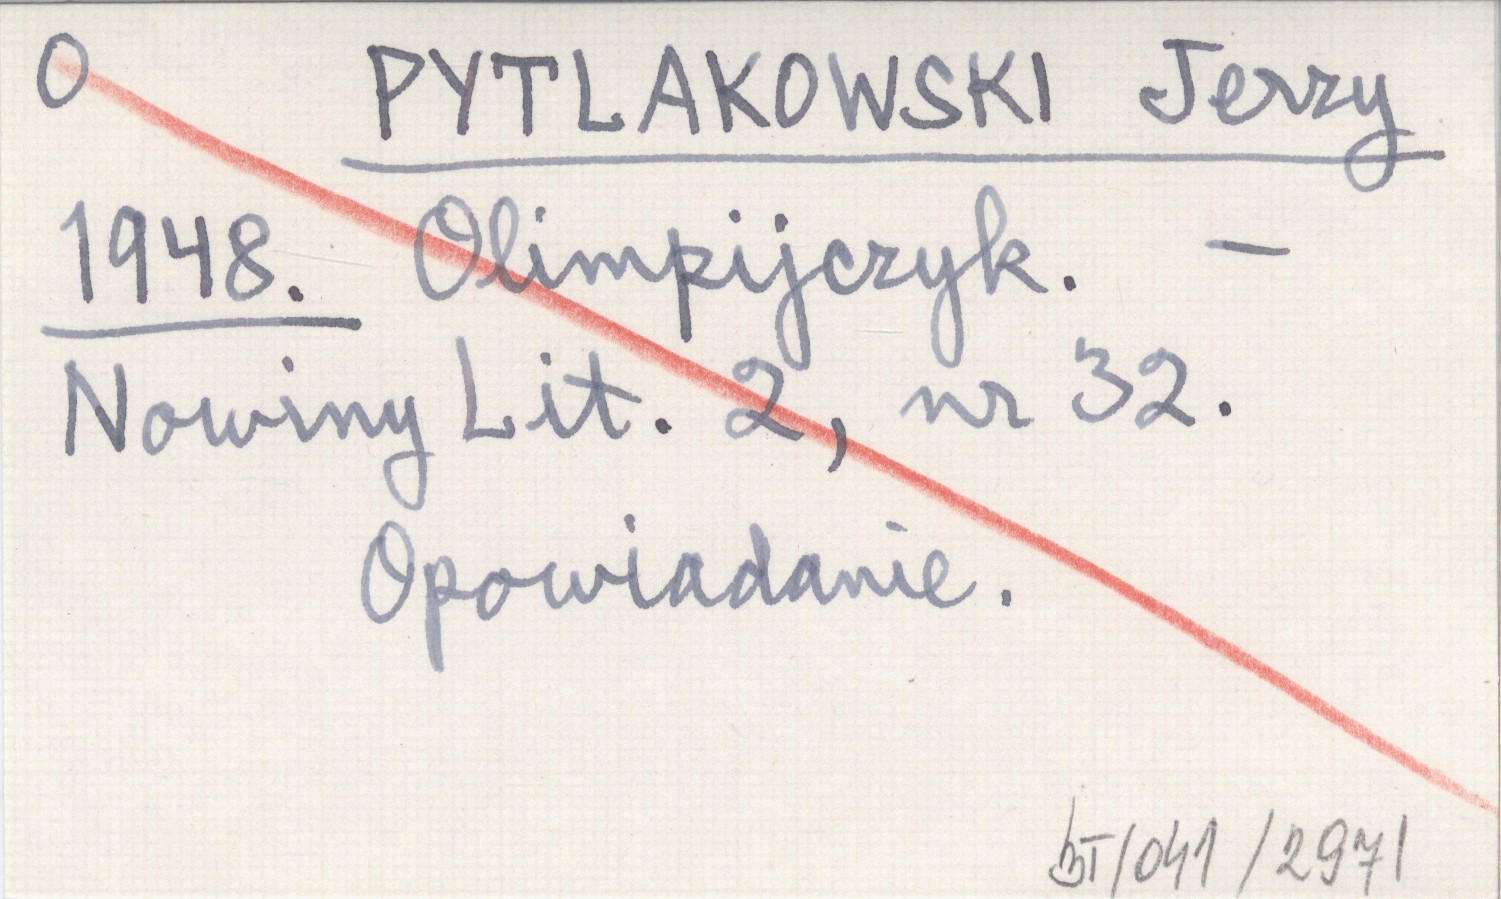 O PYTLAKOWSKI Jerzy
1948. Olimpijczyk. —
Nowiny Lit. 2, nr 32.
Opowiadanie.
/041/2971